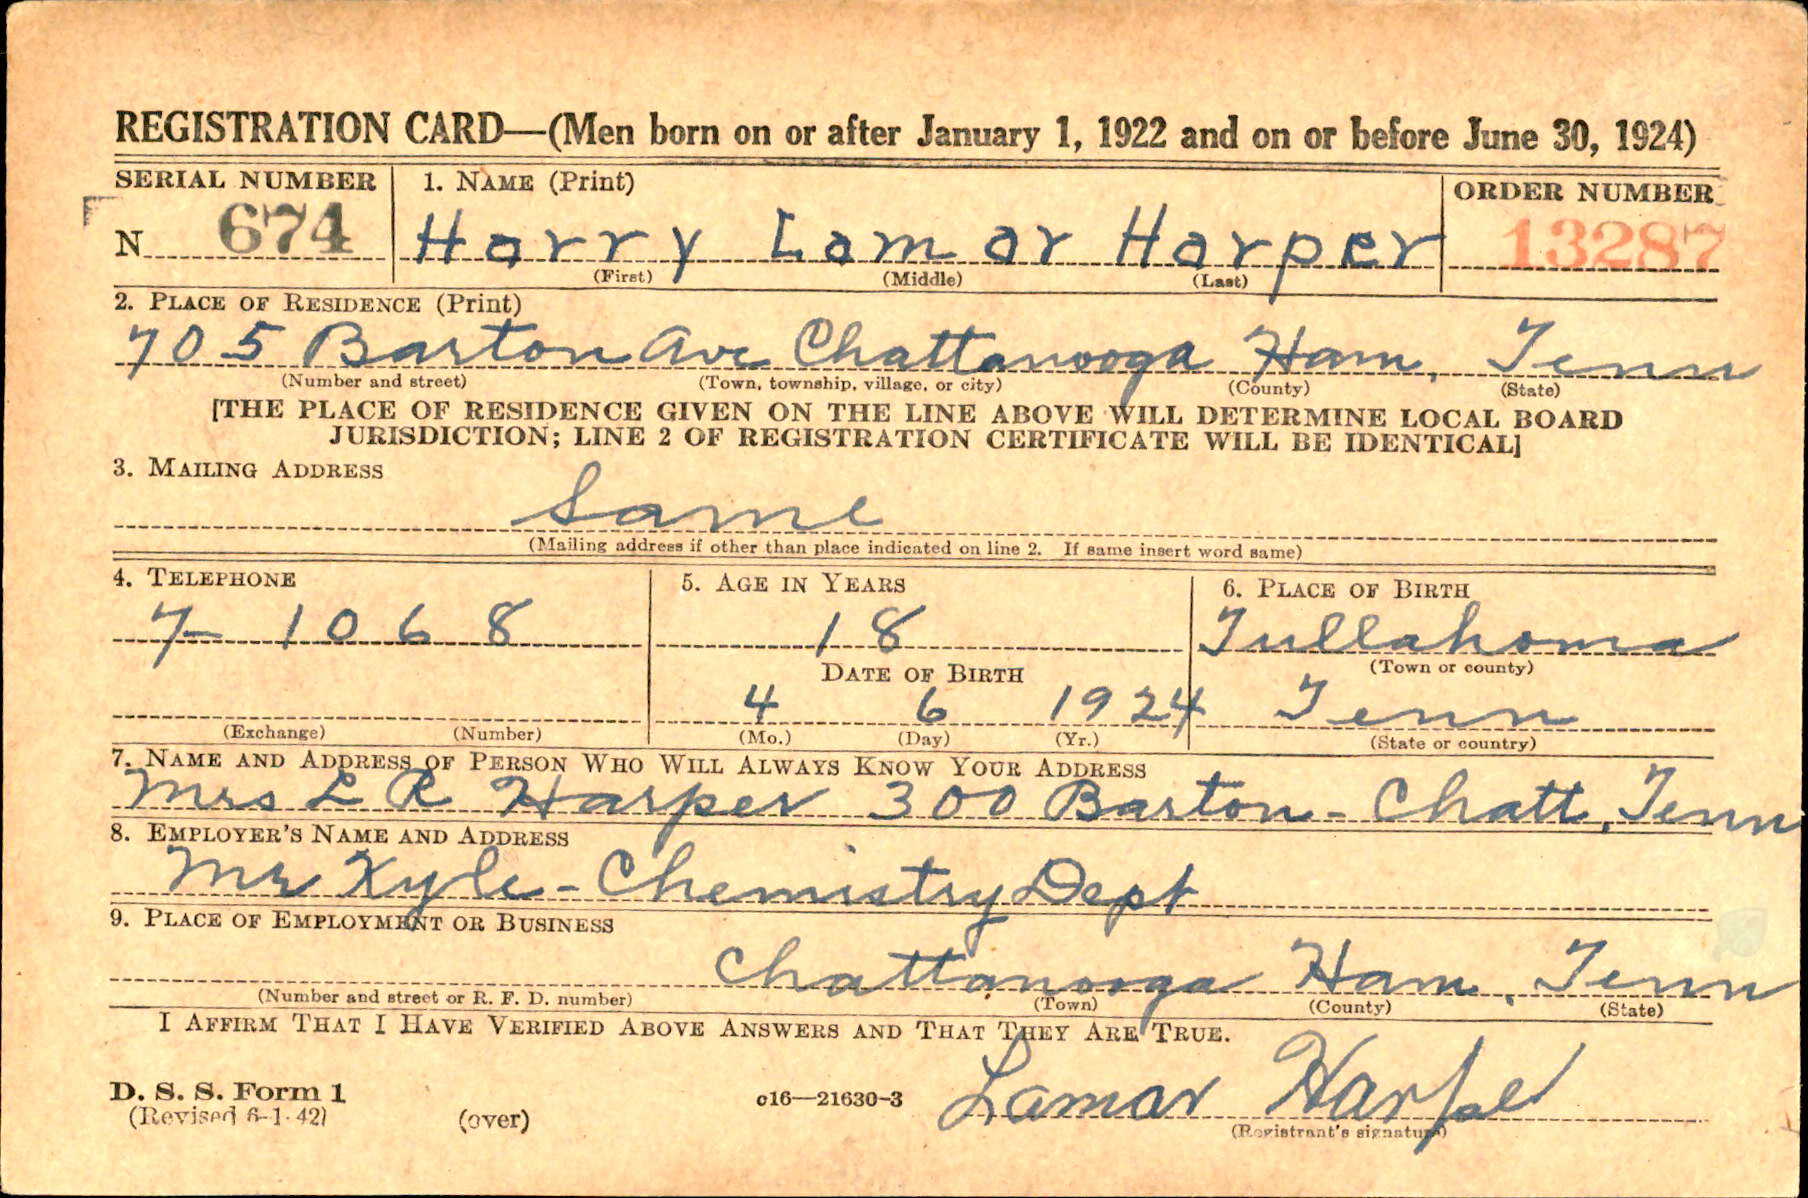 REGISTRATION CARD—(Men born on or after January 1, 1922 and on or before June 30, 1924)
SERIAL NUMBER 1. NAME (Print) ORDER NUMBER
N 674 Harry Lamar Harper 13287
(First) (Middle) (Last)
2. PLACE OF RESIDENCE (Print)
705 Barton Ave Chattanooga Ham, Tenn
(Number and street) (Town, township, village, or city) (County) (State)
[THE PLACE OF RESIDENCE GIVEN ON THE LINE ABOVE WILL DETERMINE LOCAL BOARD
JURISDICTION; LINE 2 OF REGISTRATION CERTIFICATE WILL BE IDENTICAL]
3. MAILING ADDRESS
Same
(Mailing address if other than place indicated on line 2. If same insert word same)
4. TELEPHONE 5. AGE IN YEARS 6. PLACE OF BIRTH
7-1068 18 Tullahoma
DATE OF BIRTH (Town or county)
4 6 1924 Tenn
(Exchange) (Number) (Mo.) (Day) (Yr.) (State or country)
7. NAME AND ADDRESS OF PERSON WHO WILL ALWAYS KNOW YOUR ADDRESS
Mrs L R Harper 300 Barton - Chatt, Tenn
8. EMPLOYER'S NAME AND ADDRESS
Mr Kyle - Chemistry Dept
9. PLACE OF EMPLOYMENT OR BUSINESS
Chattanooga Ham, Tenn
(Number and street or R. F. D. number) (Town) (County) (State)
I AFFIRM THAT I HAVE VERIFIED ABOVE ANSWERS AND THAT THEY ARE TRUE.
D. S. S. Form 1
(Revised 6-1-42) (over) c16—21630-3 Lamar Harper
(Registrant's signature)